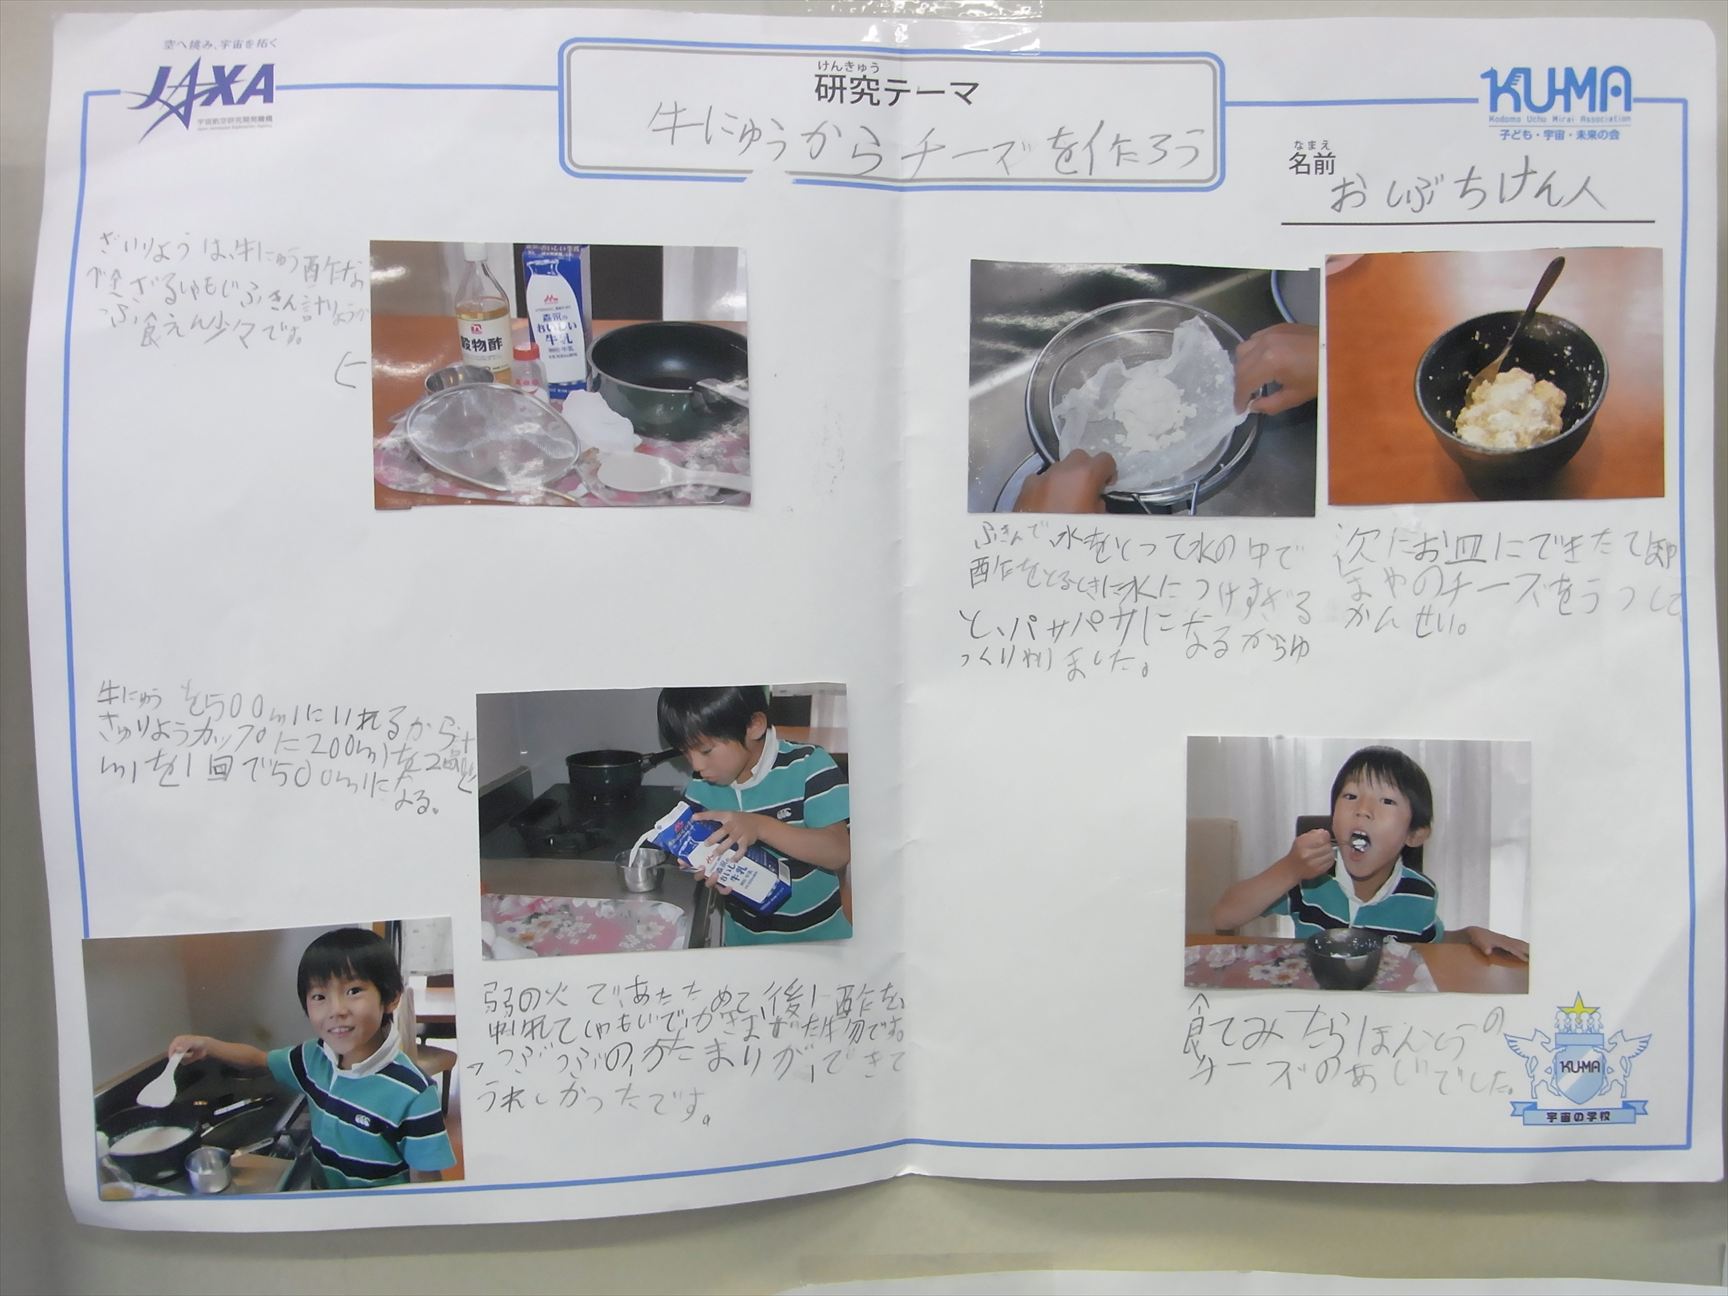 空へ挑み、宇宙を拓く
JAXA
宇宙航空研究開発機構
Japan Aerospace Exploration Agency
けんきゅう
研究テーマ
牛にゅうからチーズを作たろう
KU-MA
Kodomo Uchu Mirai Association
子ども・宇宙・未来の会
なまえ
名前
おしぶちけん人
ざいりようは、牛にゅう酢な
ざるしゃもじふきん計りょうカ
食えん少々です。
穀物酢
森永の
おいしい
牛乳
牛にゅうを500mlにいれるから
きゅりようカップに200mlを2回と
mlを1回で500mlに
なる。
森永の
おいしい
牛乳
弱の火であたためて、後に酢を
入れてしゃもじでかきまぜた物です。
つぶつぶの、かたまりが、できて
うれしかったです。
ふきんで、水をとって水の中で
酢をとるときに水につけすぎる
と、パサパサになるからゆ
っくりやりました。
次にお皿にできたて
のチーズをうつして
かんせい。
食てみたらほんとうの
チーズのあじでした。
KU-MA
宇宙の学校